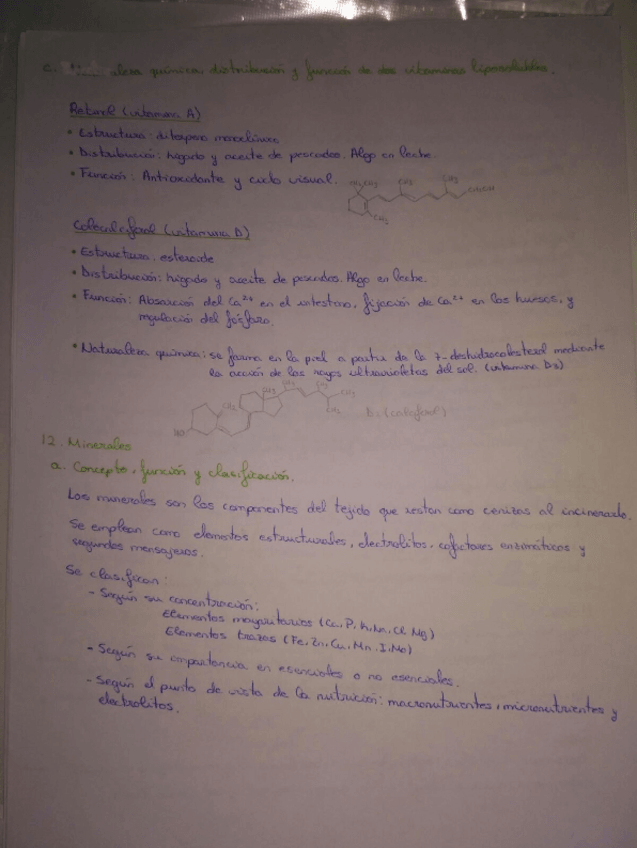 c. química, distribución y función de dos vitaminas liposolubles.
Retinol (vitamina A)
• Estructura: diterpeno monocíclico
• Distribución: hígado y aceite de pescados. Algo en leche.
• Función: Antioxidante y ciclo visual.
CH3 CH3 CH3 CH3 CH2OH
CH3
Colecalciferol (vitamina D)
• Estructura: esteroide
• Distribución: hígado y aceite de pescados. Algo en leche.
• Función: Absorción del Ca2+ en el intestino, fijación de Ca2+ en los huesos, y
regulación del fósforo.
• Naturaleza química: se forma en la piel a partir de la 7-deshidrocolesterol mediante
la acción de los rayos ultravioletas del sol. (vitamina D3)
CH3 CH3 CH3 CH3
CH2 CH3
HO
12. Minerales
a. Concepto, función y clasificación.
Los minerales son los componentes del tejido que restan como cenizas al incinerarlo.
Se emplean como elementos estructurales, electrolitos, cofactores enzimáticos y
segundos mensajeros.
Se clasifican:
- Según su concentración:
Elementos mayoritarios (Ca, P, K, Na, Cl, Mg)
Elementos trazas (Fe, Zn, Cu, Mn, I, Mo)
- Según su importancia en esenciales o no esenciales.
- Según el punto de vista de la nutrición: macronutrientes, micronutrientes y
electrolitos.